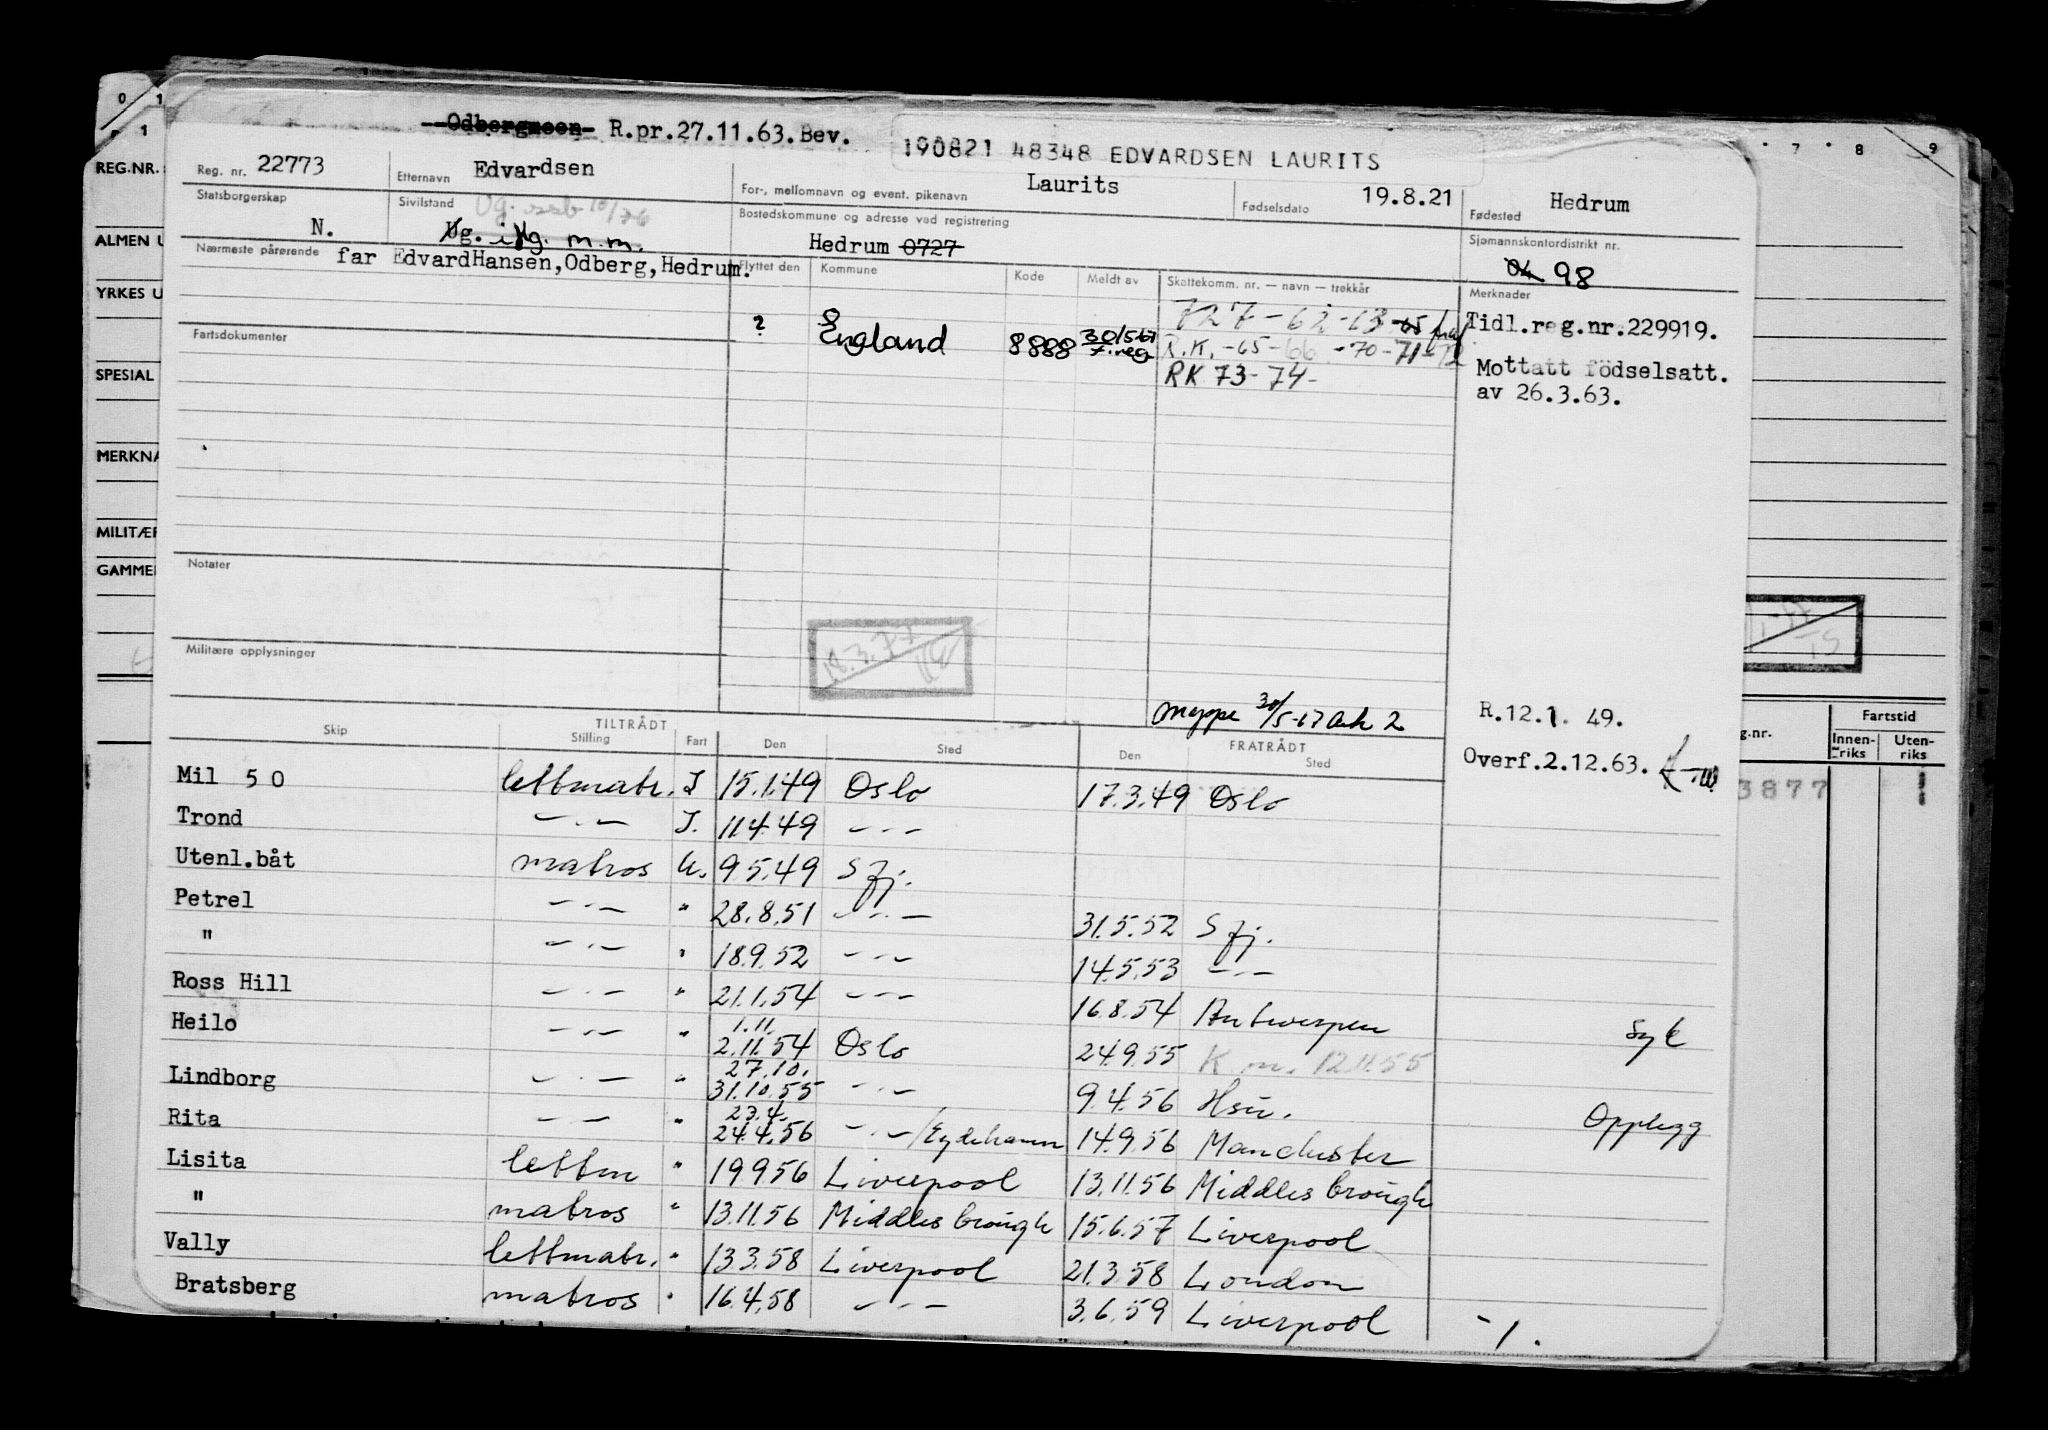 0 1
1
7 8 9
Odbergmoen R.pr.27.11.63.Bev.
190821 48348 EDVARDSEN LAURITS
REG.NR.
Reg. nr. 22773 Etternavn Edvardsen For-, mellomnavn og event. pikenavn Laurits Fødselsdato 19.8.21 Fødested Hedrum
Statsborgerskap N. Sivilstand Ug. m.m. Bostedskommune og adresse ved registrering Hedrum 0727 Sjømannskontordistrikt nr. 04 98
ALMEN U
Nærmeste pårørende far EdvardHansen,Odberg,Hedrum.
Flyttet den Kommune Kode Meldt av Skattekomm. nr. — navn — trekkår Merknader
YRKES U
727-62-63-65
Tidl.reg.nr.229919.
Fartsdokumenter
? England 8888 30/5-67 f.reg
R.K.-65-66-70-71-72
RK 73-74-
Mottatt födselsatt.
av 26.3.63.
SPESIAL
MERKNA
MILITÆR
GAMME
Notater
18.3.77
Militære opplysninger
Mappe 30/5-67 Ark 2
R.12.1. 49.
Overf.2.12.63.
g.nr. Fartstid
Innenriks Utenriks
3877
TILTRÅDT FRATRÅDT
Skip Stilling Fart Den Sted Den Sted
Mil 50 lettmatr. I 15.1.49 Oslo 17.3.49 Oslo
Trond —.— I. 11.4.49 —.—
Utenl.båt matros U. 9.5.49 Sfj.
Petrel —.— " 28.8.51 —.— 31.5.52 Sfj.
" —.— " 18.9.52 —.— 14.5.53 —.—
Ross Hill —.— " 21.1.54 —.— 16.8.54 Antwerpen Syk
Heilo —.— " 1.11. 2.11.54 Oslo 24.9.55 K m. 12.11.55
Lindborg —.— " 27.10. 31.10.55 —.— 9.4.56 Hsu. Opplegg
Rita —.— " 23.4. 24.4.56 —.—/Eydehavn 14.9.56 Manchester
Lisita lettm " 19.9.56 Liverpool 13.11.56 Middlesbrough
" matros " 13.11.56 Middlesbrough 15.6.57 Liverpool
Vally lettmatr. " 13.3.58 Liverpool 21.3.58 London
Bratsberg matros " 16.4.58 —.— 3.6.59 Liverpool -1.